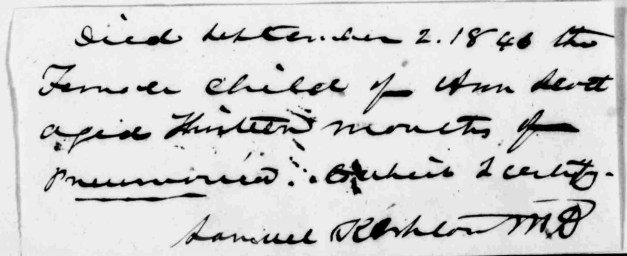 Died September 2. 1846 the
Female Child of Ann Scott
aged thirteen months of
Pneumonia. Which I certify.
Samuel MD